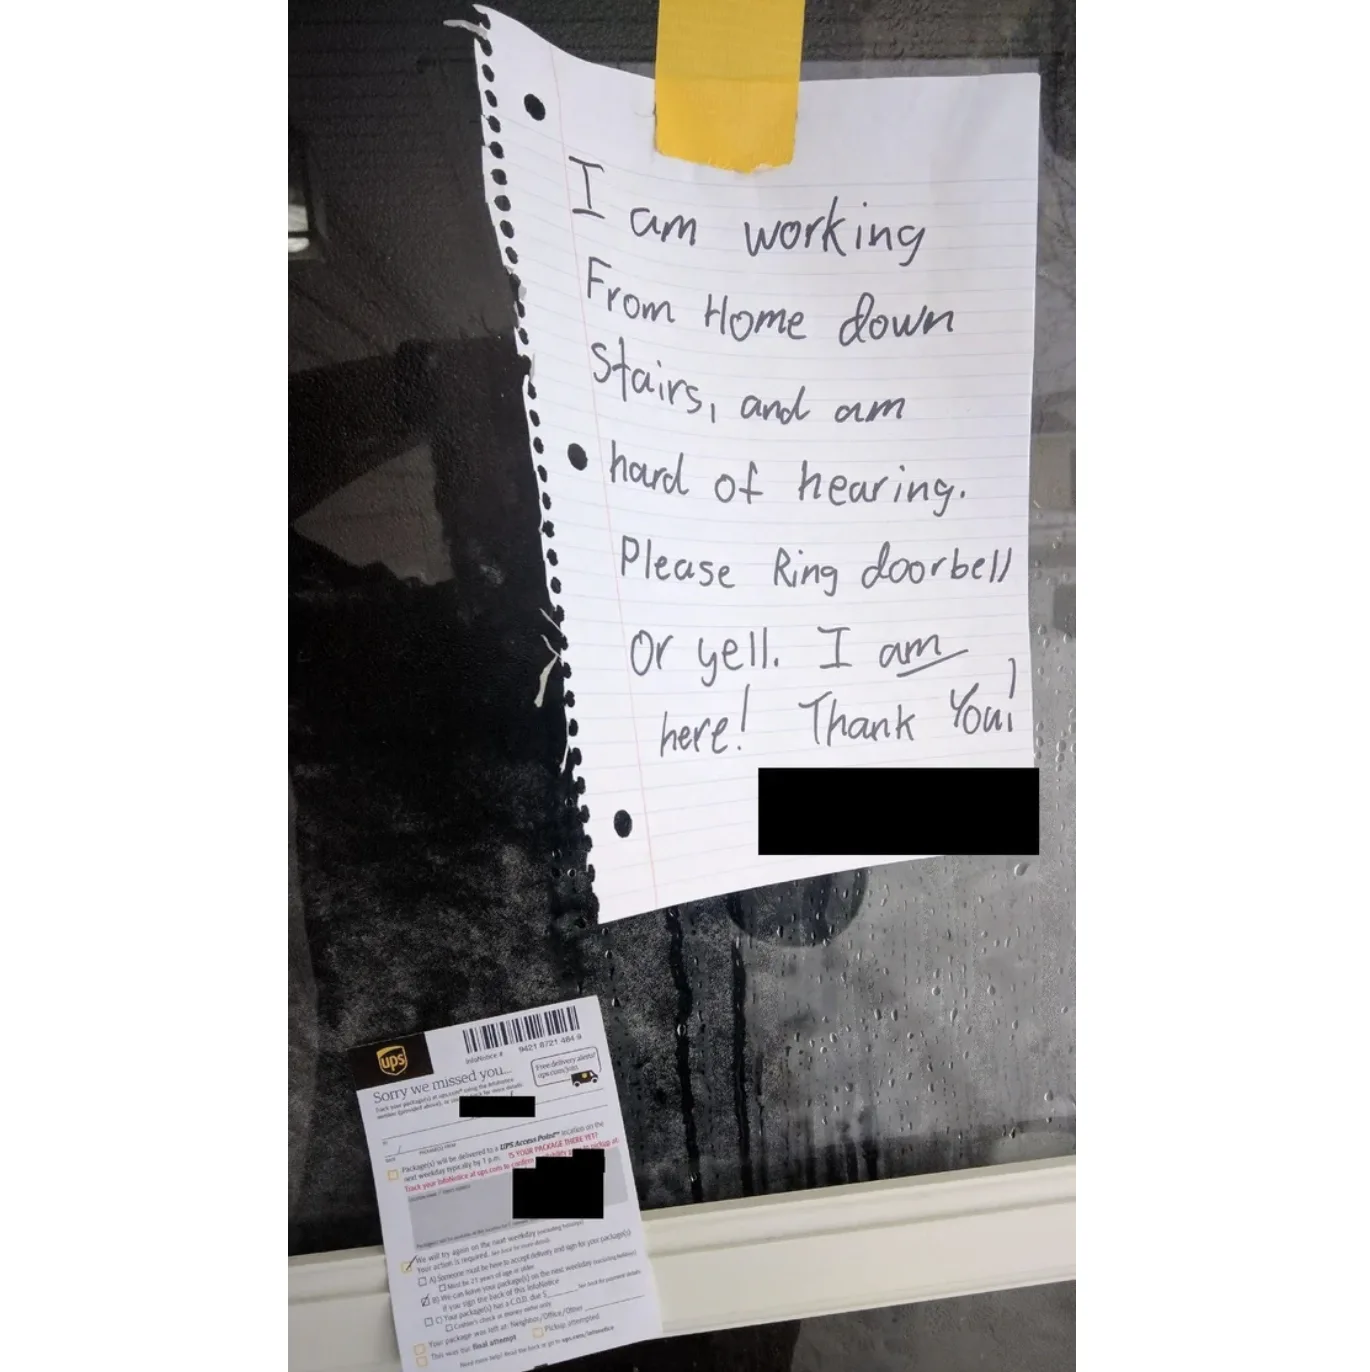 I am working
From Home down
Stairs, and am
hard of hearing.
Please Ring doorbell
Or yell. I am
here! Thank You!
ups
InfoNotice # 9421 8721 484 9
Sorry we missed you...
Free delivery alerts!
ups.com/
Package(s) will be delivered to a UPS Access Point™ location on the
next weekday typically by 1 p.m. IS YOUR PACKAGE THERE YET?
Track your InfoNotice at ups.com to confirm
We will try again on the next weekday (excluding holidays)
Your action is required. See back for more details.
A) Someone must be here to accept delivery and sign for your package(s)
Must be 21 years of age or older
B) We can leave your package(s) on the next weekday (excluding holidays)
if you sign the back of this InfoNotice
C) Your package(s) has a C.O.D. due $ See back for payment details
Cashier's check or money order only
Your package was left at: Neighbor/Office/Other
This was the final attempt
Pickup attempted
Need more help? Read the back or go to ups.com/infonotice